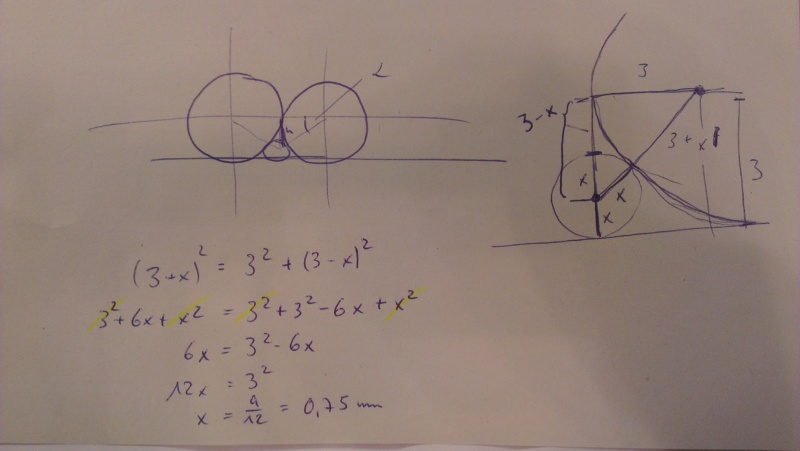 3
3 - x
3 + x
3
x
x
x
(3+x)² = 3² + (3-x)²
3² + 6x + x² = 3² + 3² - 6x + x²
6x = 3² - 6x
12x = 3²
x = 9/12 = 0,75 mm